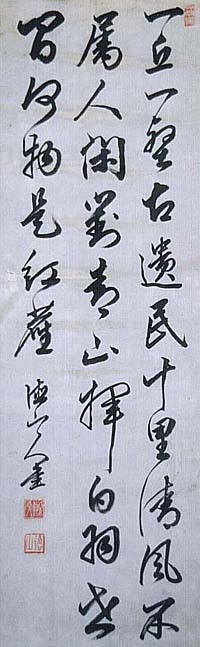 一丘一壑古遺民十里清風不
屬人閑對青山揮白羽世
間何物是紅塵